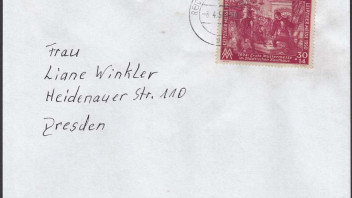 Frau
Liane Winkler
Heidenauer Str. 110
Dresden
30
+14